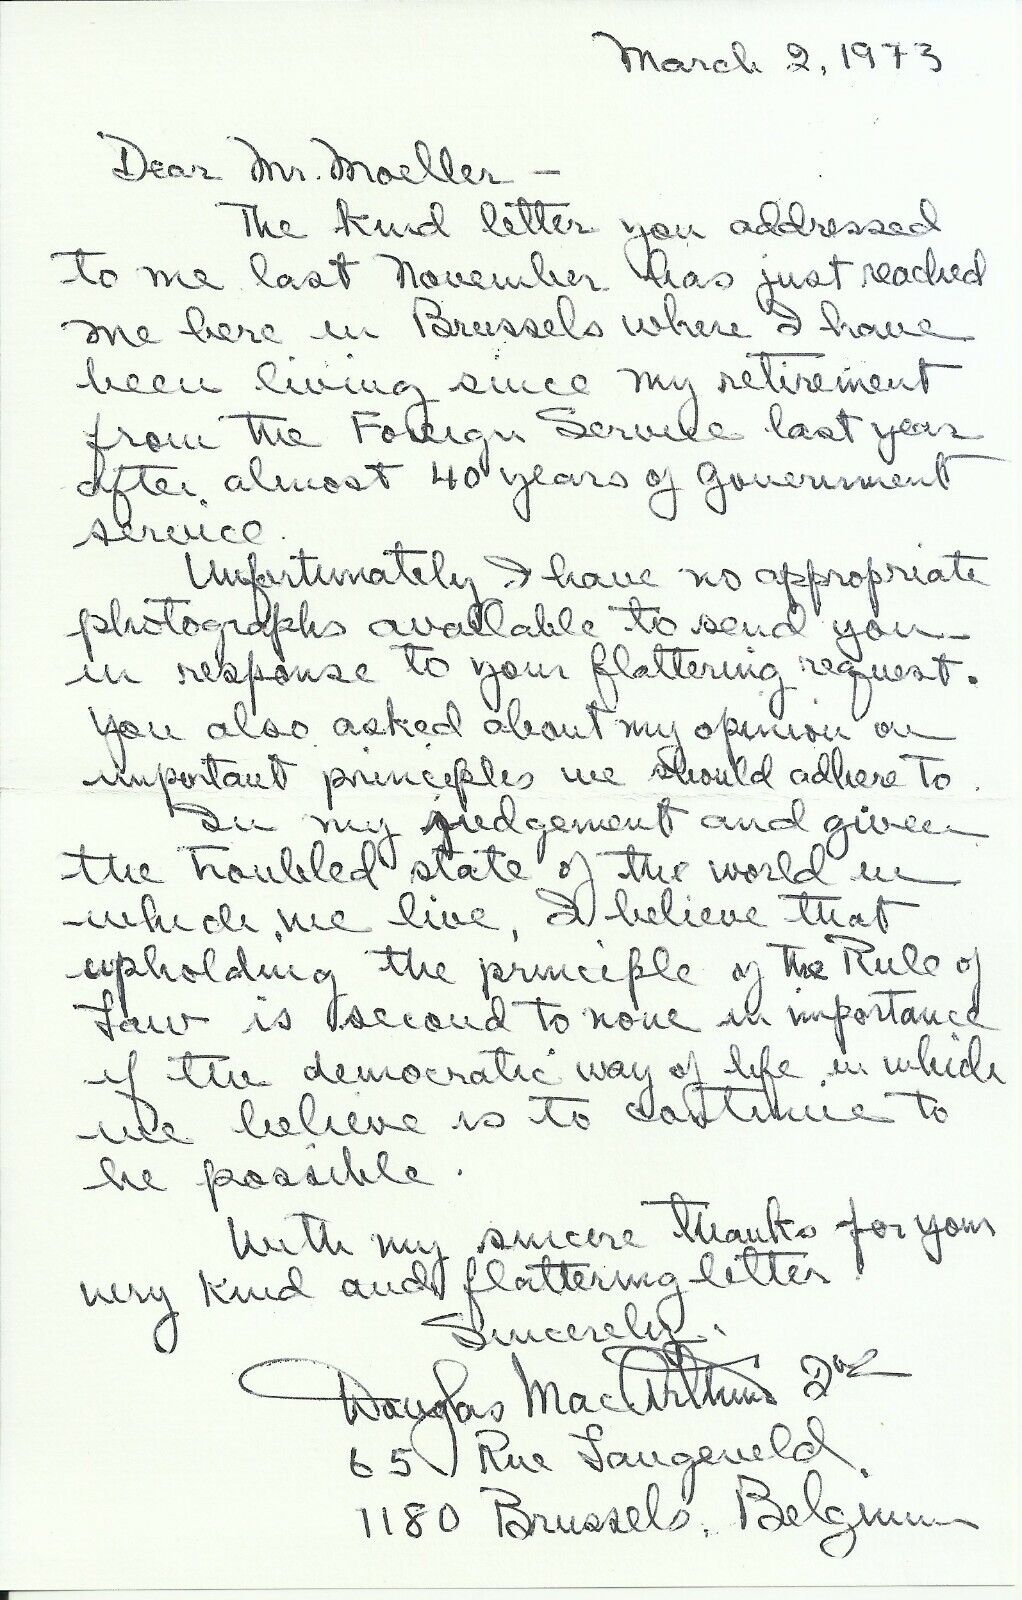 March 2, 1973
Dear Mr. Moeller —
The kind letter you addressed
to me last November has just reached
me here in Brussels where I have
been living since my retirement
from the Foreign Service last year
after almost 40 years of Government
service.
Unfortunately I have no appropriate
photographs available to send you
in response to your flattering request.
You also asked about my opinion on
important principles we should adhere to.
In my judgement and given
the troubled state of the world in
which we live, I believe that
upholding the principle of the Rule of
Law is second to none in importance
if the democratic way of life in which
we believe is to continue to
be possible.
With my sincere thanks for your
very kind and flattering letter.
Sincerely,
Douglas MacArthur 2nd
65 Rue Langeveld,
1180 Brussels, Belgium